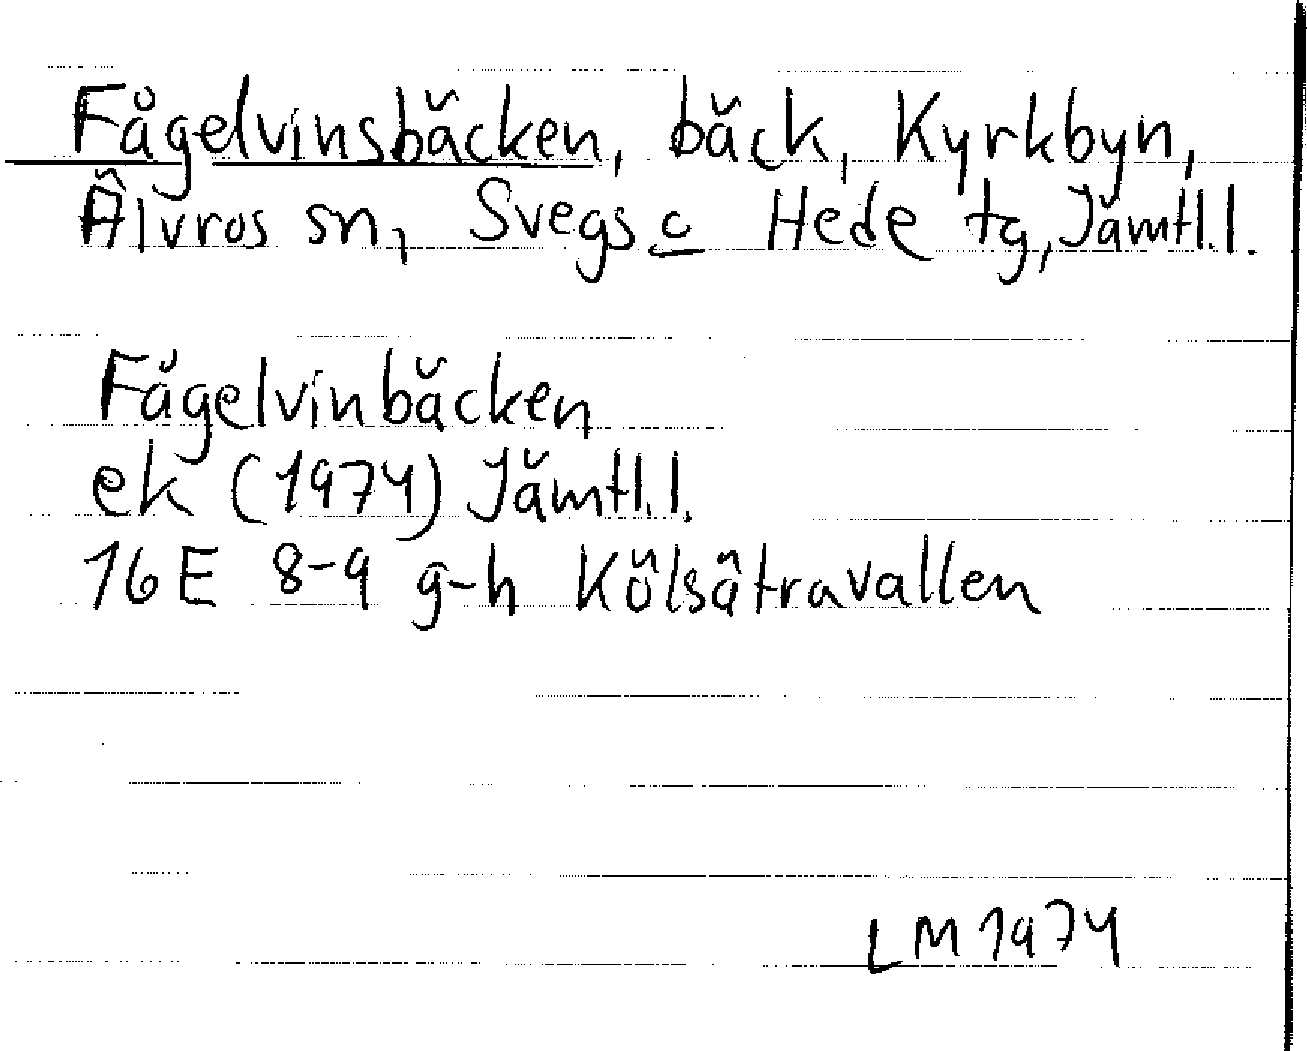 Fågelvinsbäcken, bäck, Kyrkbyn,
Älvros sn, Svegs o Hede tg, Jämtl.l.
Fågelvinbäcken
ek (1974) Jämtl.l.
16 E 8-9 g-h Kölsätravallen
LM 1974